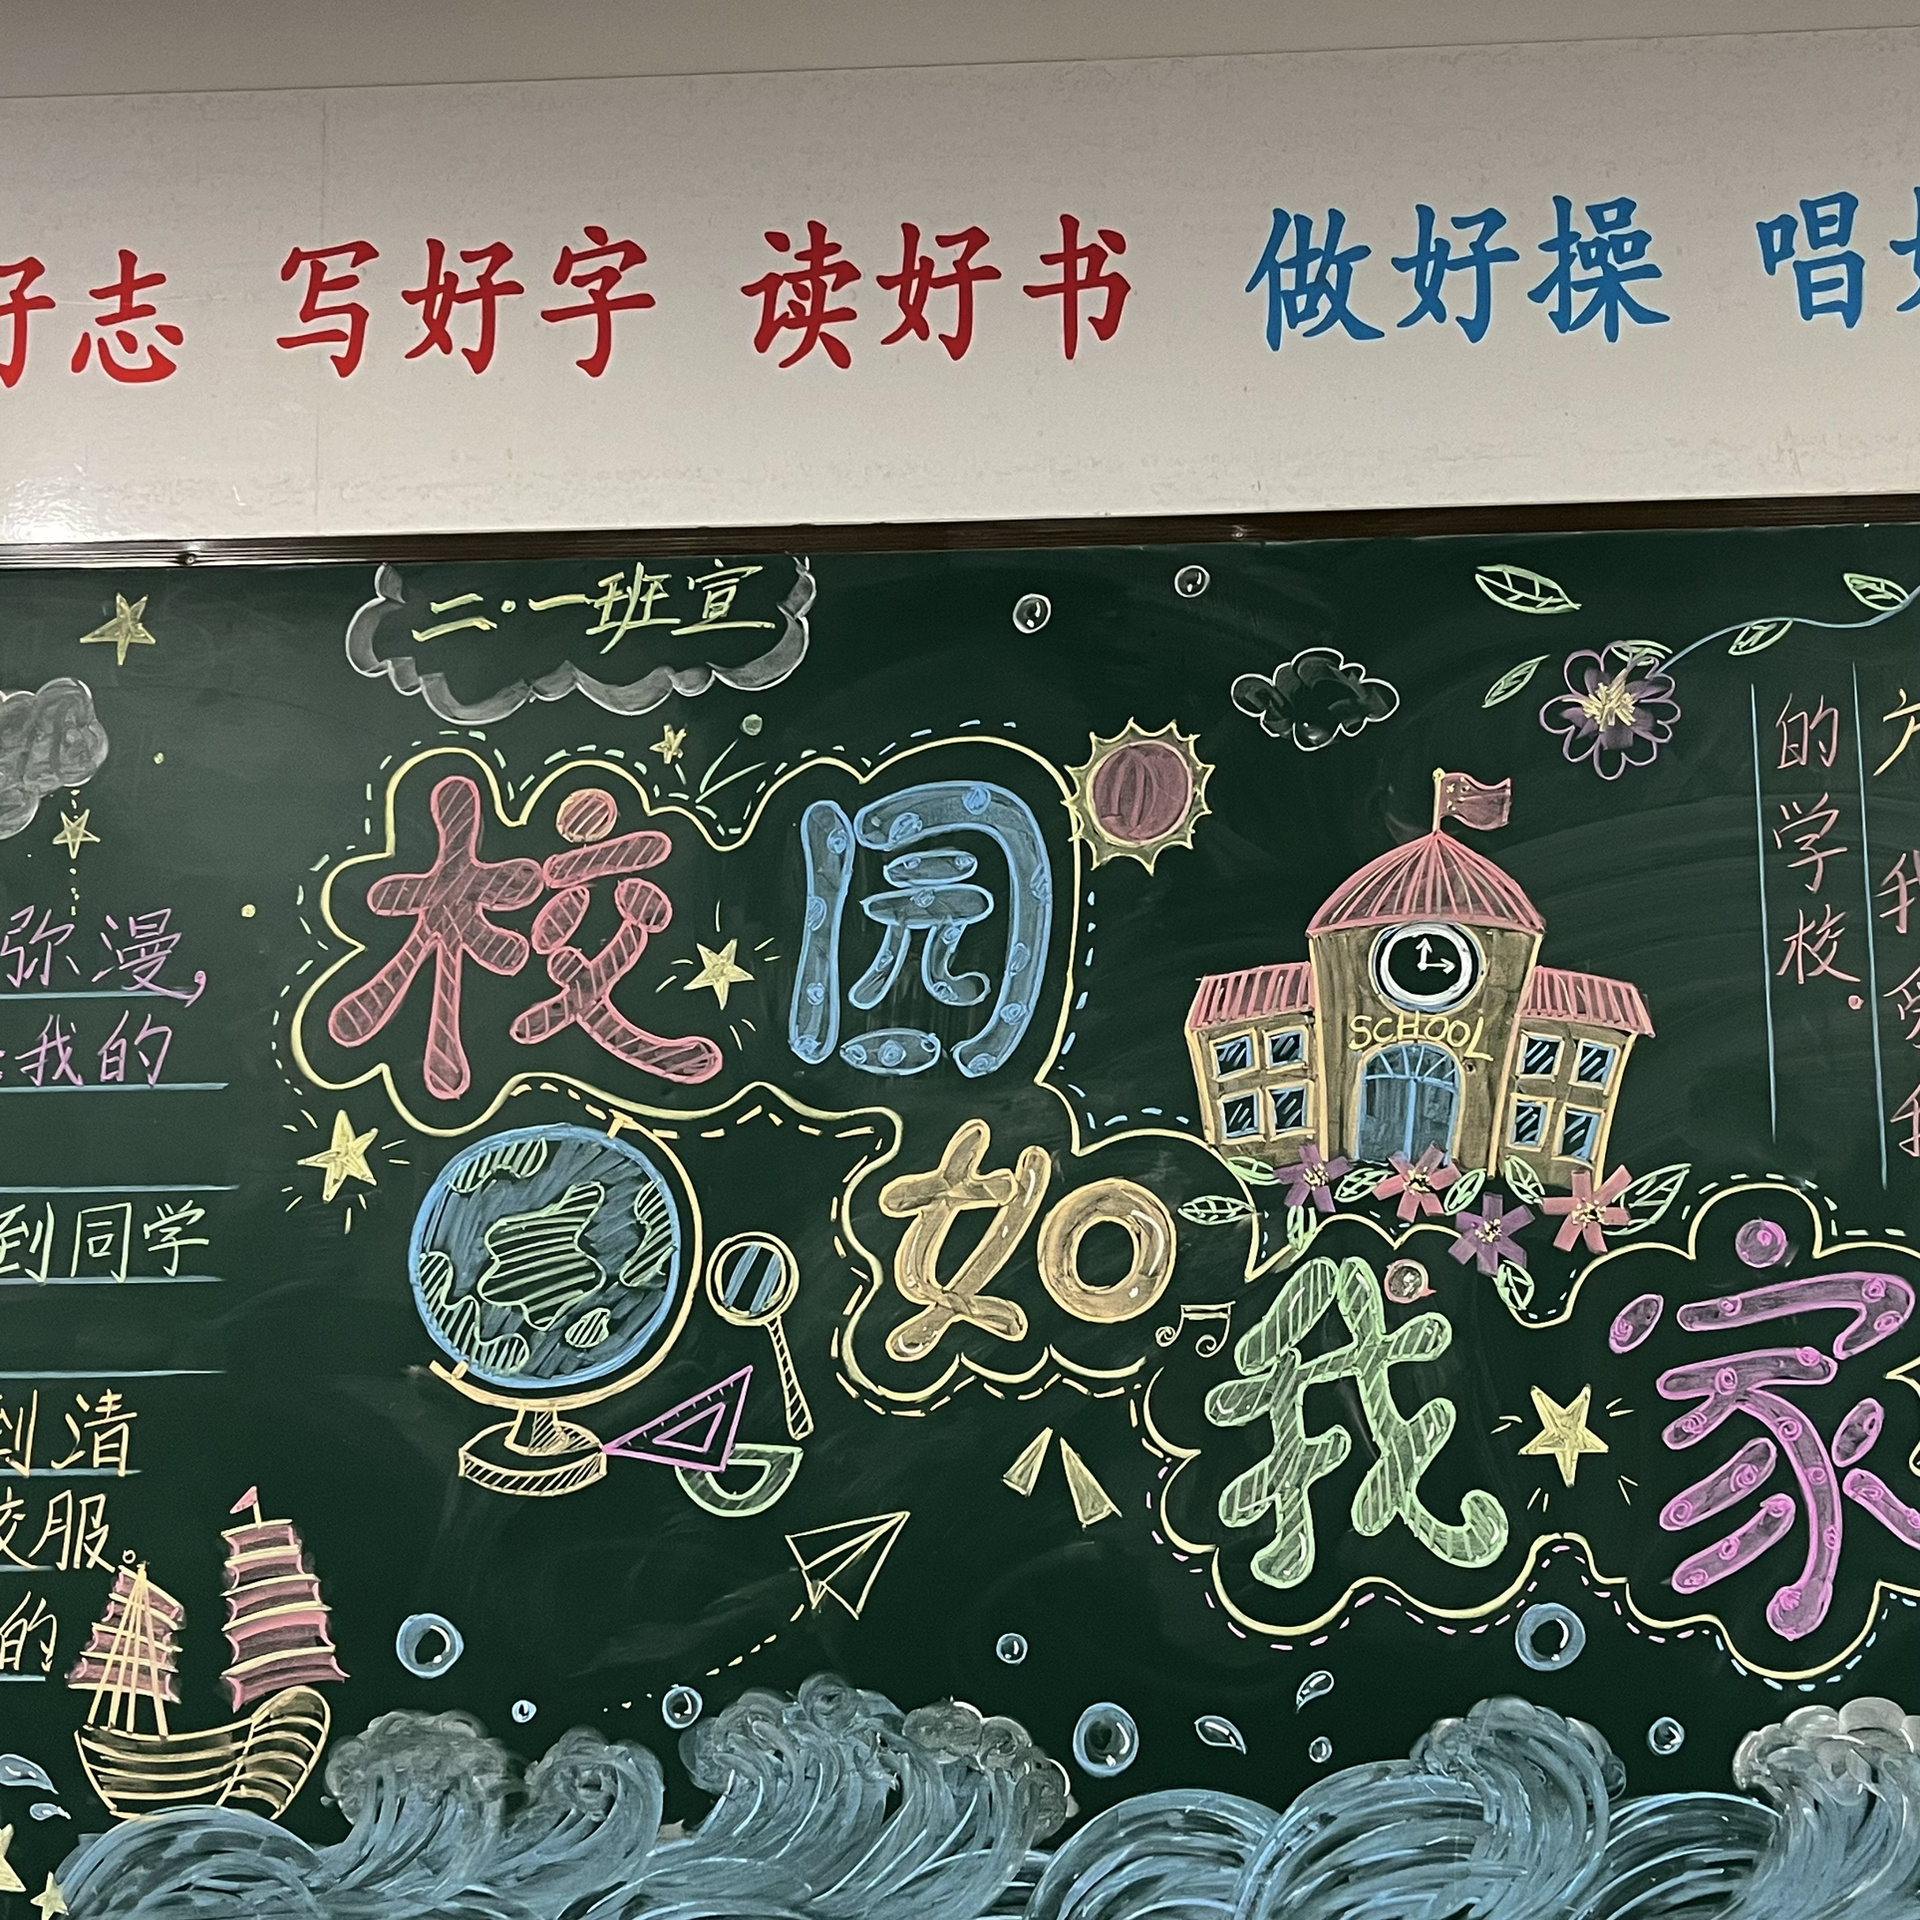 好志 写好字 读好书 做好操 唱
二·一班宣
校园
如
我家
SCHOOL
弥漫，
我的
到同学
到清
校服。
的
的学校.
我
我